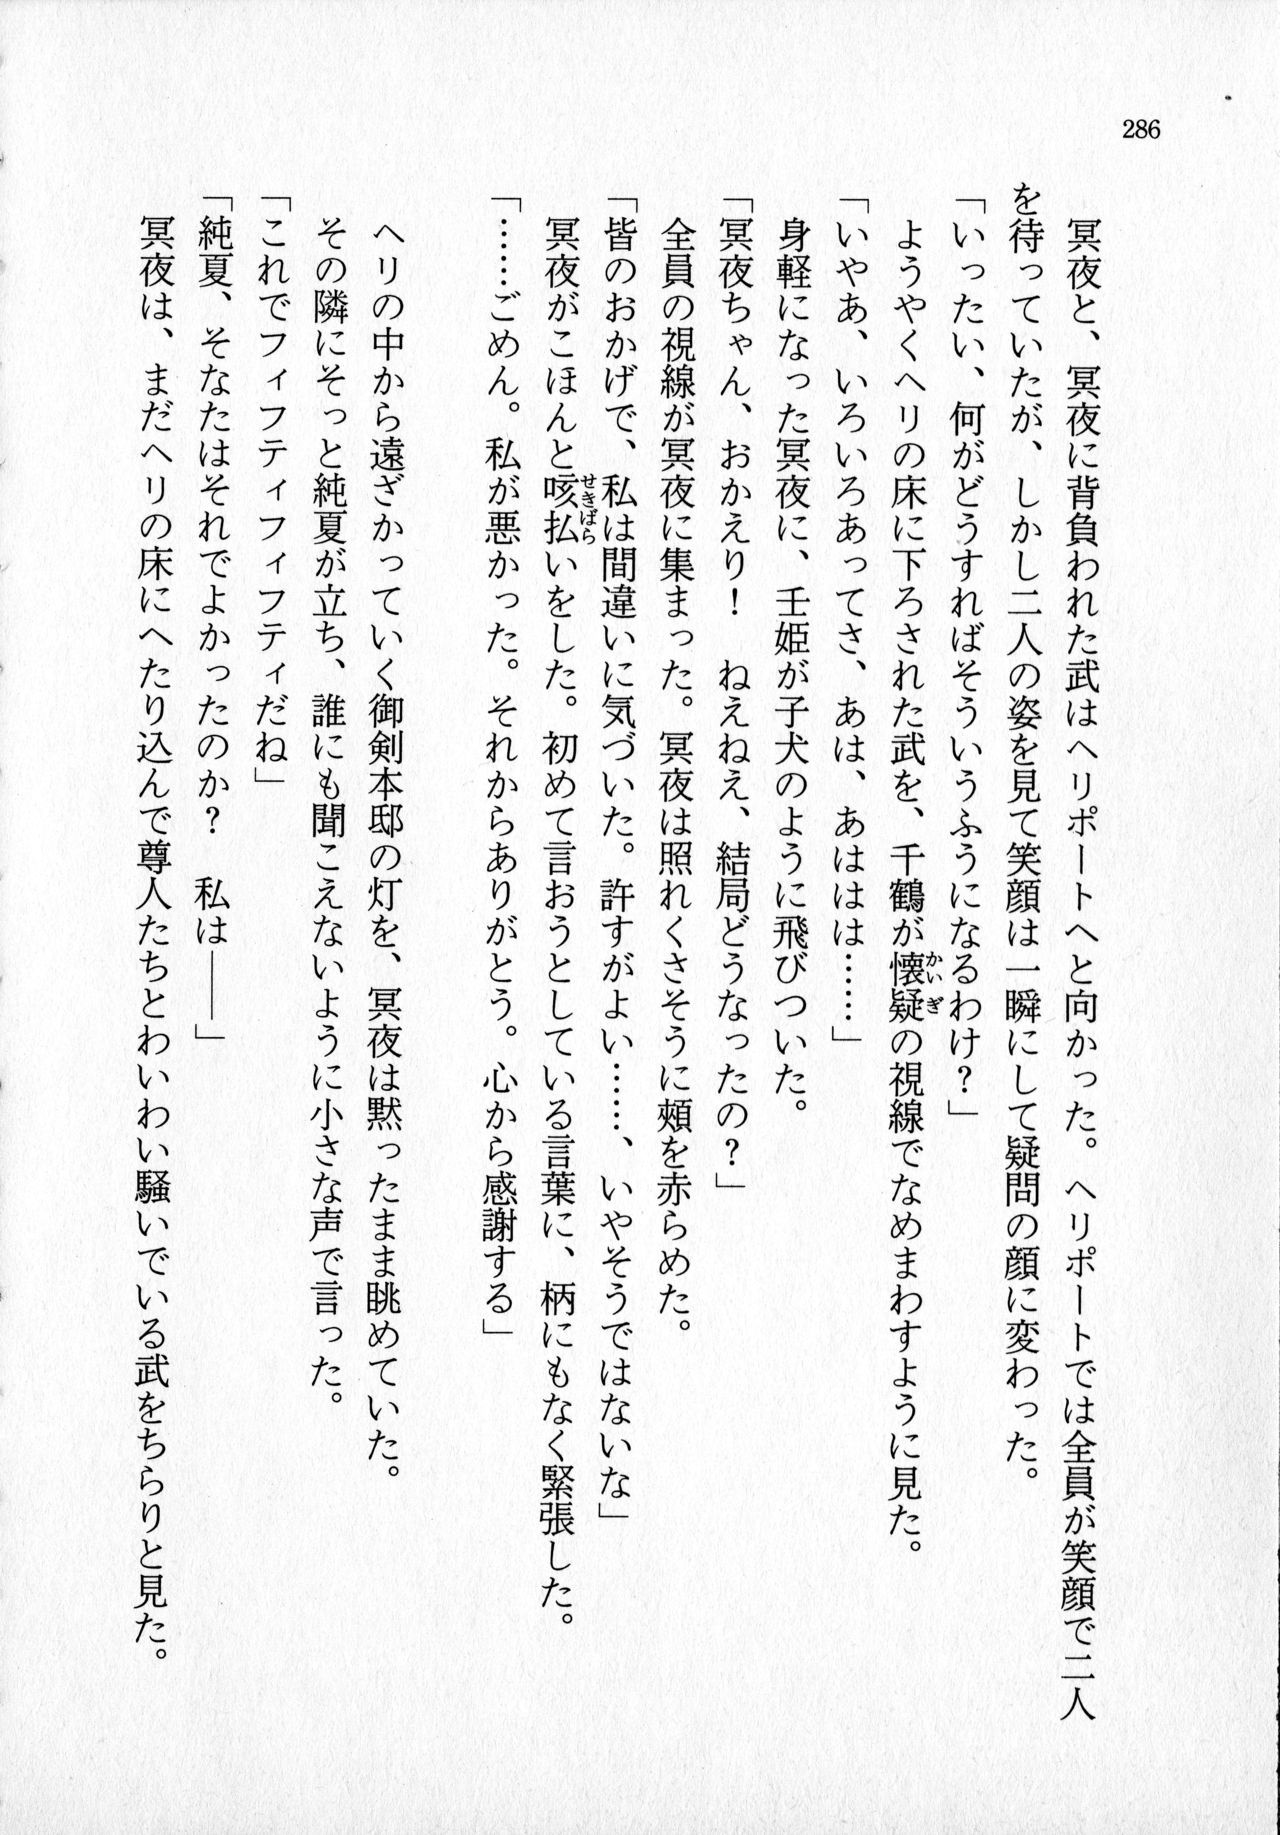 286
冥夜と、冥夜に背負われた武はヘリポートへと向かった。ヘリポートでは全員が笑顔で二人
を待っていたが、しかし二人の姿を見て笑顔は一瞬にして疑問の顔に変わった。
「いったい、何がどうすればそういうふうになるわけ？」
ようやくヘリの床に下ろされた武を、千鶴が懐疑かいぎの視線でなめまわすように見た。
「いやあ、いろいろあってさ、あは、あははは……」
身軽になった冥夜に、壬姫が子犬のように飛びついた。
「冥夜ちゃん、おかえり！　ねえねえ、結局どうなったの？」
全員の視線が冥夜に集まった。冥夜は照れくさそうに頬を赤らめた。
「皆のおかげで、私は間違いに気づいた。許すがよい……、いやそうではないな」
冥夜がこほんと咳払せきばらいをした。初めて言おうとしている言葉に、柄にもなく緊張した。
「……ごめん。私が悪かった。それからありがとう。心から感謝する」
ヘリの中から遠ざかっていく御剣本邸の灯を、冥夜は黙ったまま眺めていた。
その隣にそっと純夏が立ち、誰にも聞こえないように小さな声で言った。
「これでフィフティフィフティだね」
「純夏、そなたはそれでよかったのか？　私は――」
冥夜は、まだヘリの床にへたり込んで尊人たちとわいわい騒いでいる武をちらりと見た。